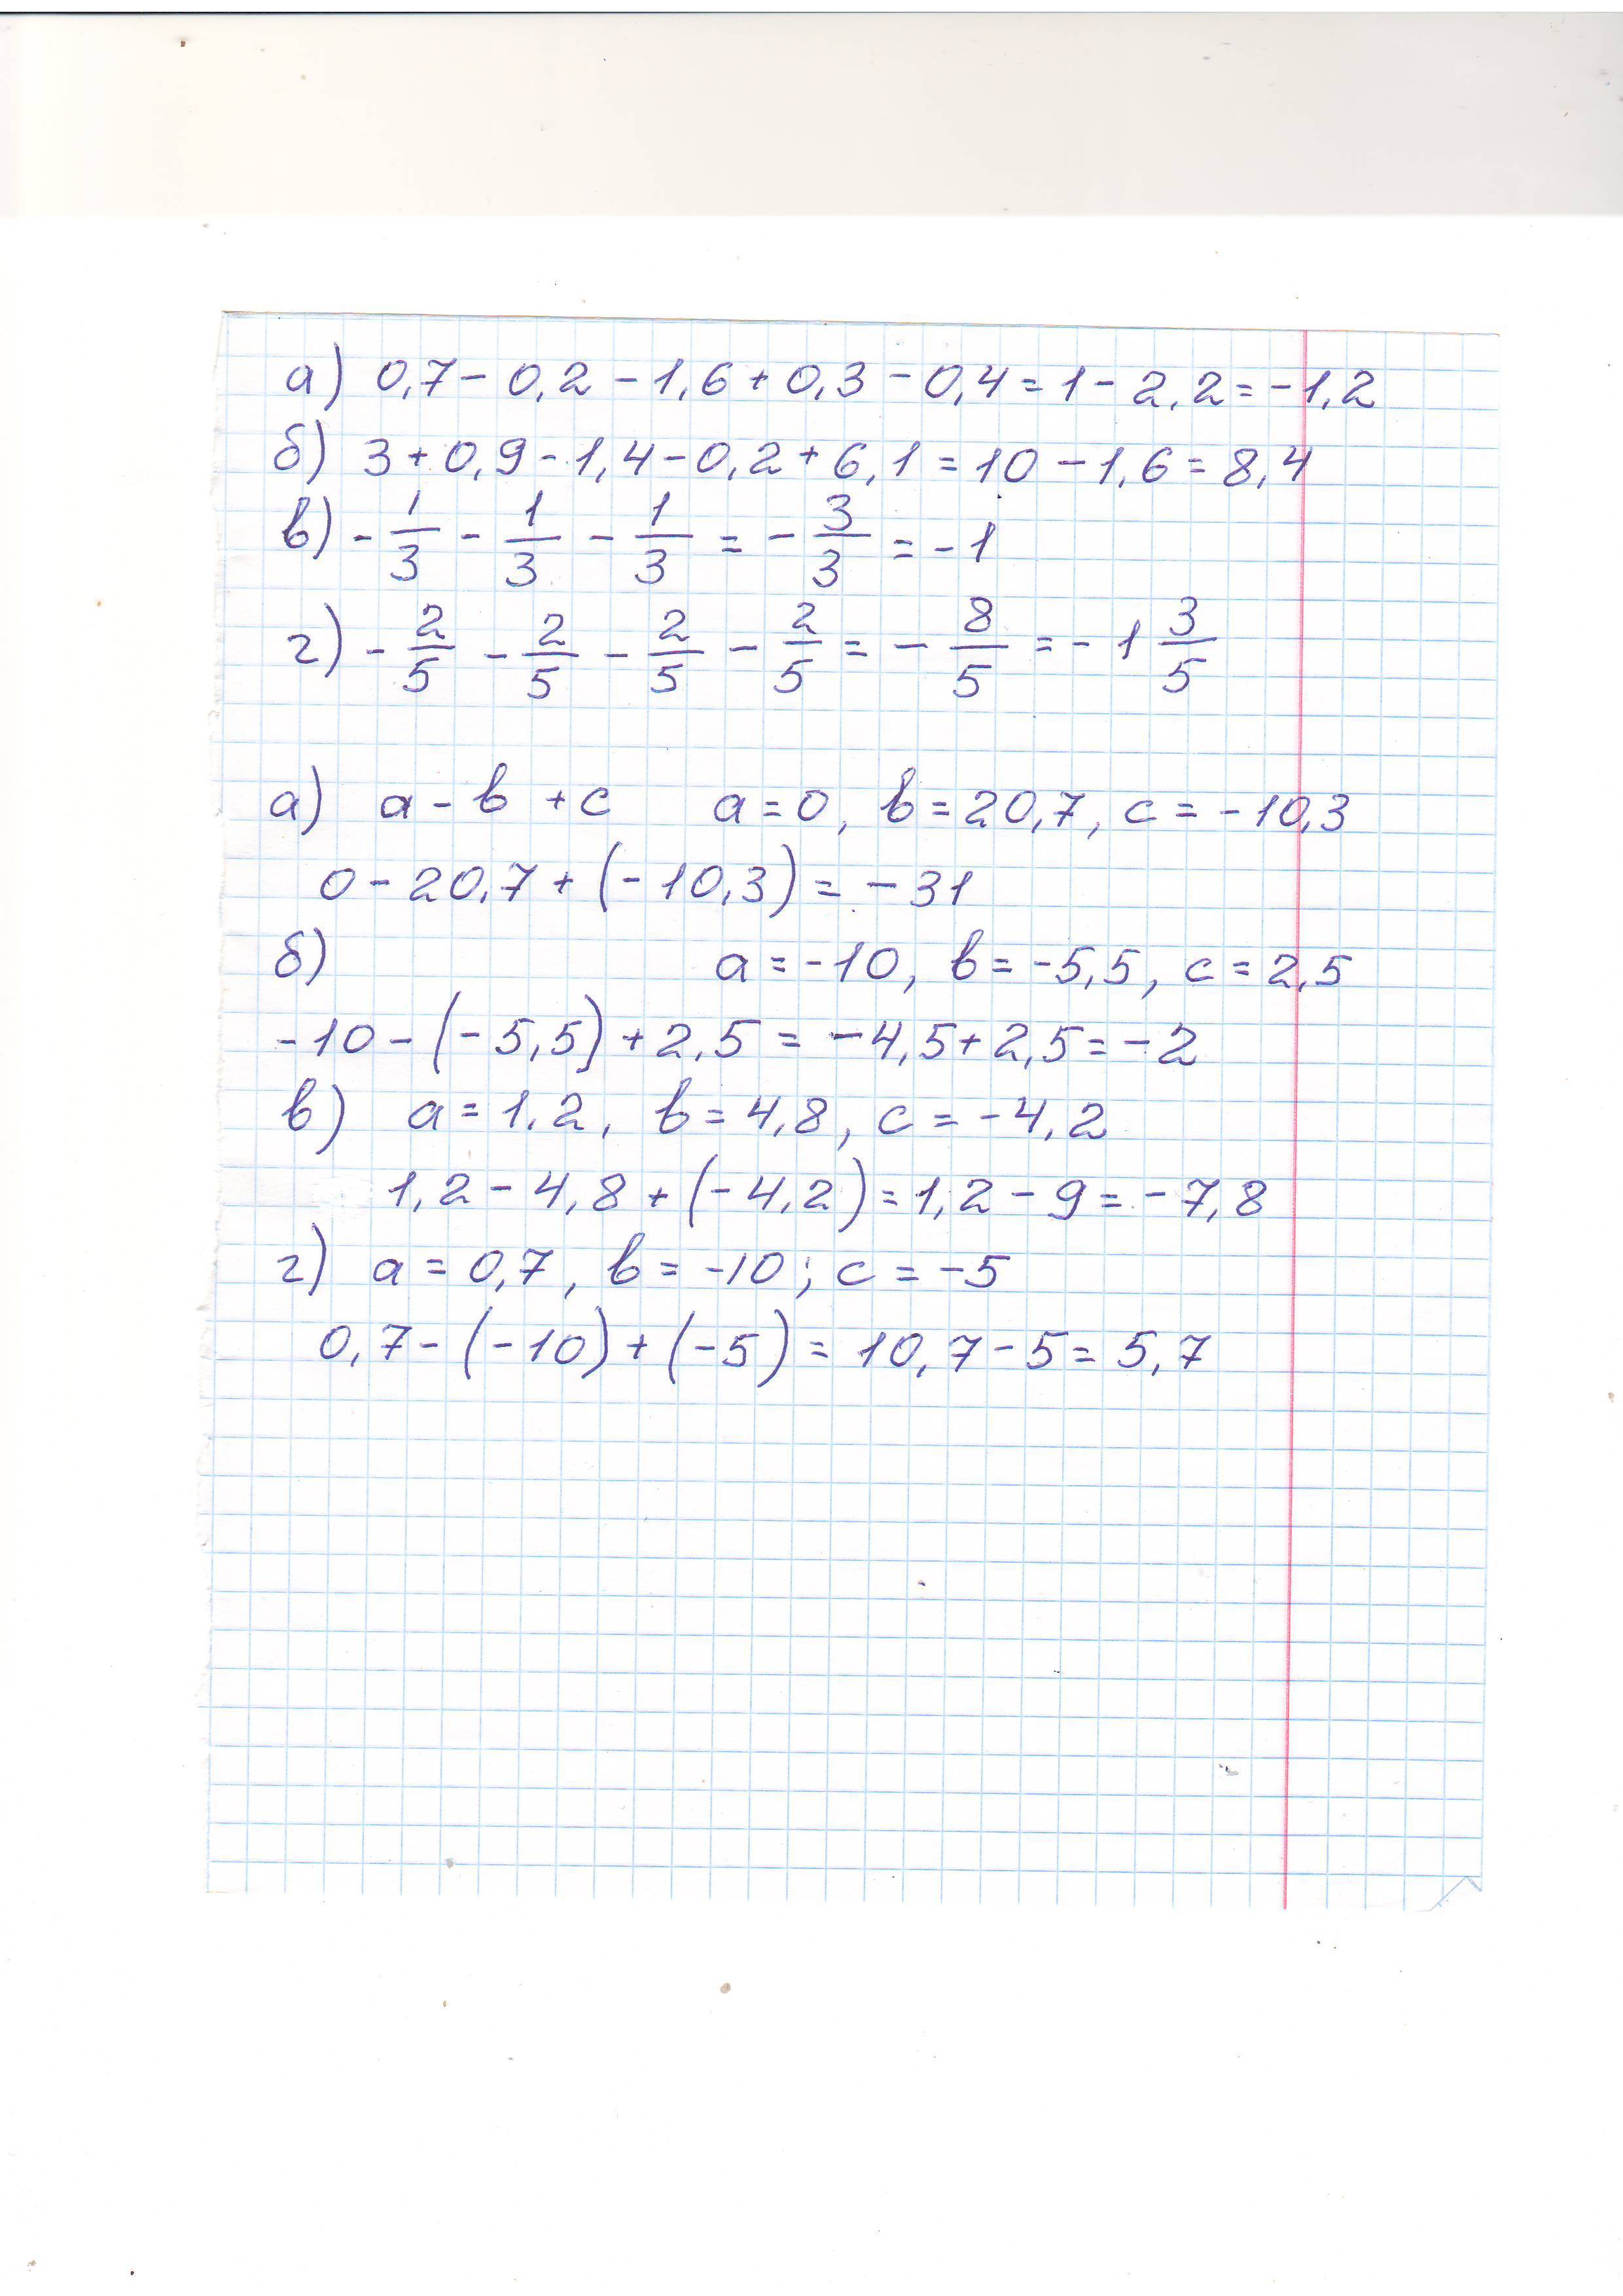 а) 0,7 - 0,2 - 1,6 + 0,3 - 0,4 = 1 - 2,2 = -1,2
б) 3 + 0,9 - 1,4 - 0,2 + 6,1 = 10 - 1,6 = 8,4
в) - 1/3 - 1/3 - 1/3 = - 3/3 = -1
г) - 2/5 - 2/5 - 2/5 - 2/5 = - 8/5 = - 1 3/5
а) а - в + с а = 0, в = 20,7, с = -10,3
0 - 20,7 + (-10,3) = -31
б) а = -10, в = -5,5, с = 2,5
-10 - (-5,5) + 2,5 = -4,5 + 2,5 = -2
в) а = 1,2, в = 4,8, с = -4,2
1,2 - 4,8 + (-4,2) = 1,2 - 9 = -7,8
г) а = 0,7, в = -10; с = -5
0,7 - (-10) + (-5) = 10,7 - 5 = 5,7